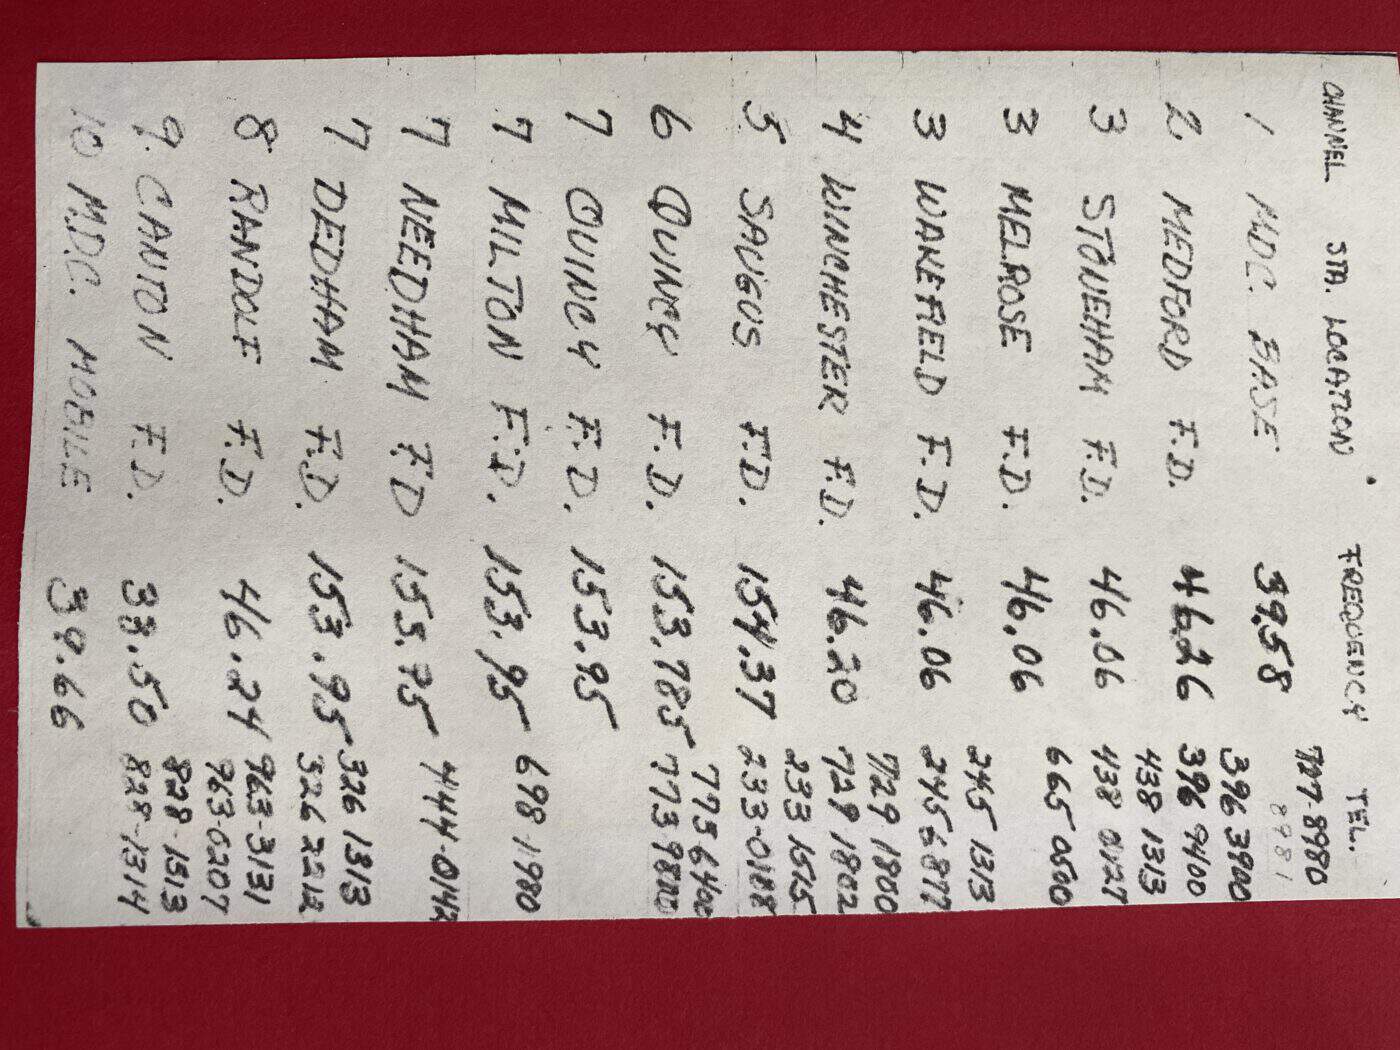 CHANNEL STA. LOCATION FREQUENCY TEL.
727-8980
1 MDC. BASE 39.58 8981
396 3900
2 MEDFORD F.D. 46.26 396 9400
438 1313
3 STONEHAM F.D. 46.06 438 0127
3 MELROSE F.D. 46.06 665 0500
245 1313
3 WAKEFIELD F.D. 46.06 245 6877
729 1800
4 WINCHESTER F.D. 46.20 729 1802
233 1515
5 SAUGUS F.D. 154.37 233-0188
773 6400
6 QUINCY F.D. 153.785 773 9800
7 QUINCY F.D. 153.95
7 MILTON F.D. 153.95 698-1980
7 NEEDHAM F.D 153.95 444-0142
326 1313
7 DEDHAM F.D. 153.95 326 2212
963-3131
8 RANDOLF F.D. 46.24 963-0207
828-1313
9. CANTON F.D. 33.50 828-1314
10 M.D.C. MOBILE 39.66